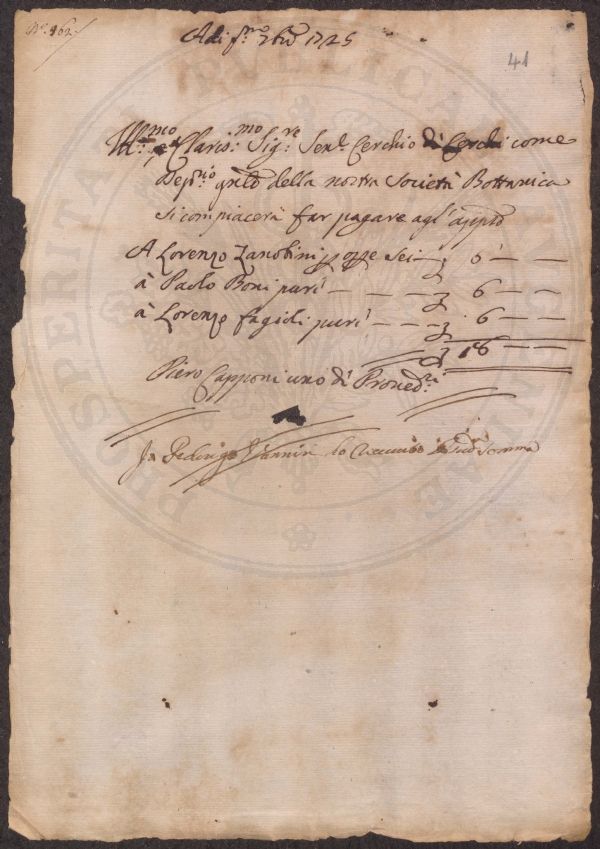 N.º 162
41
Adi p.mo 7bre 1725
Ill.mo e Clariss.mo Sig.re Sen.e Cerchio di Cerchi come
Dep.rio gnle della nostra Società Bottanica
si compiacerà far pagare agl'appo
A Lorenzo Zanobini sei — 6 — —
à Paolo Boni pari — — — 6 — —
à Lorenzo fagioli pari — — 6 — —
18 — —
Piero Capponi uno di Proved.ri
Jo Vannini ho riceuuto la sud.a somma
PROSPERITATI PUBLICAE AUGENDAE